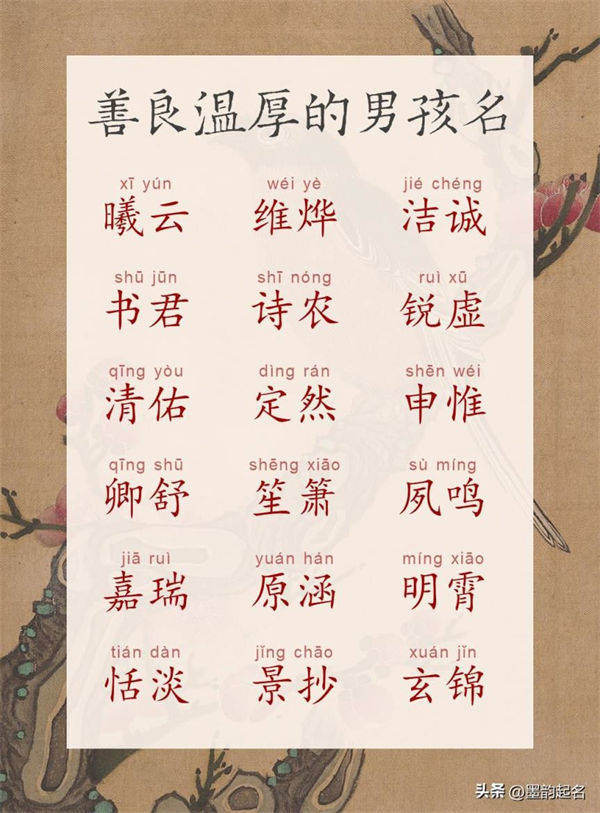 善良温厚的男孩名
xī yún wéi yè jié chéng
曦云 维烨 洁诚
shū jūn shī nóng ruì xū
书君 诗农 锐虚
qīng yòu dìng rán shēn wéi
清佑 定然 申惟
qīng shū shēng xiāo sù míng
卿舒 笙箫 夙鸣
jiā ruì yuán hán míng xiāo
嘉瑞 原涵 明霄
tián dàn jǐng chāo xuán jǐn
恬淡 景抄 玄锦
头条 @墨韵起名